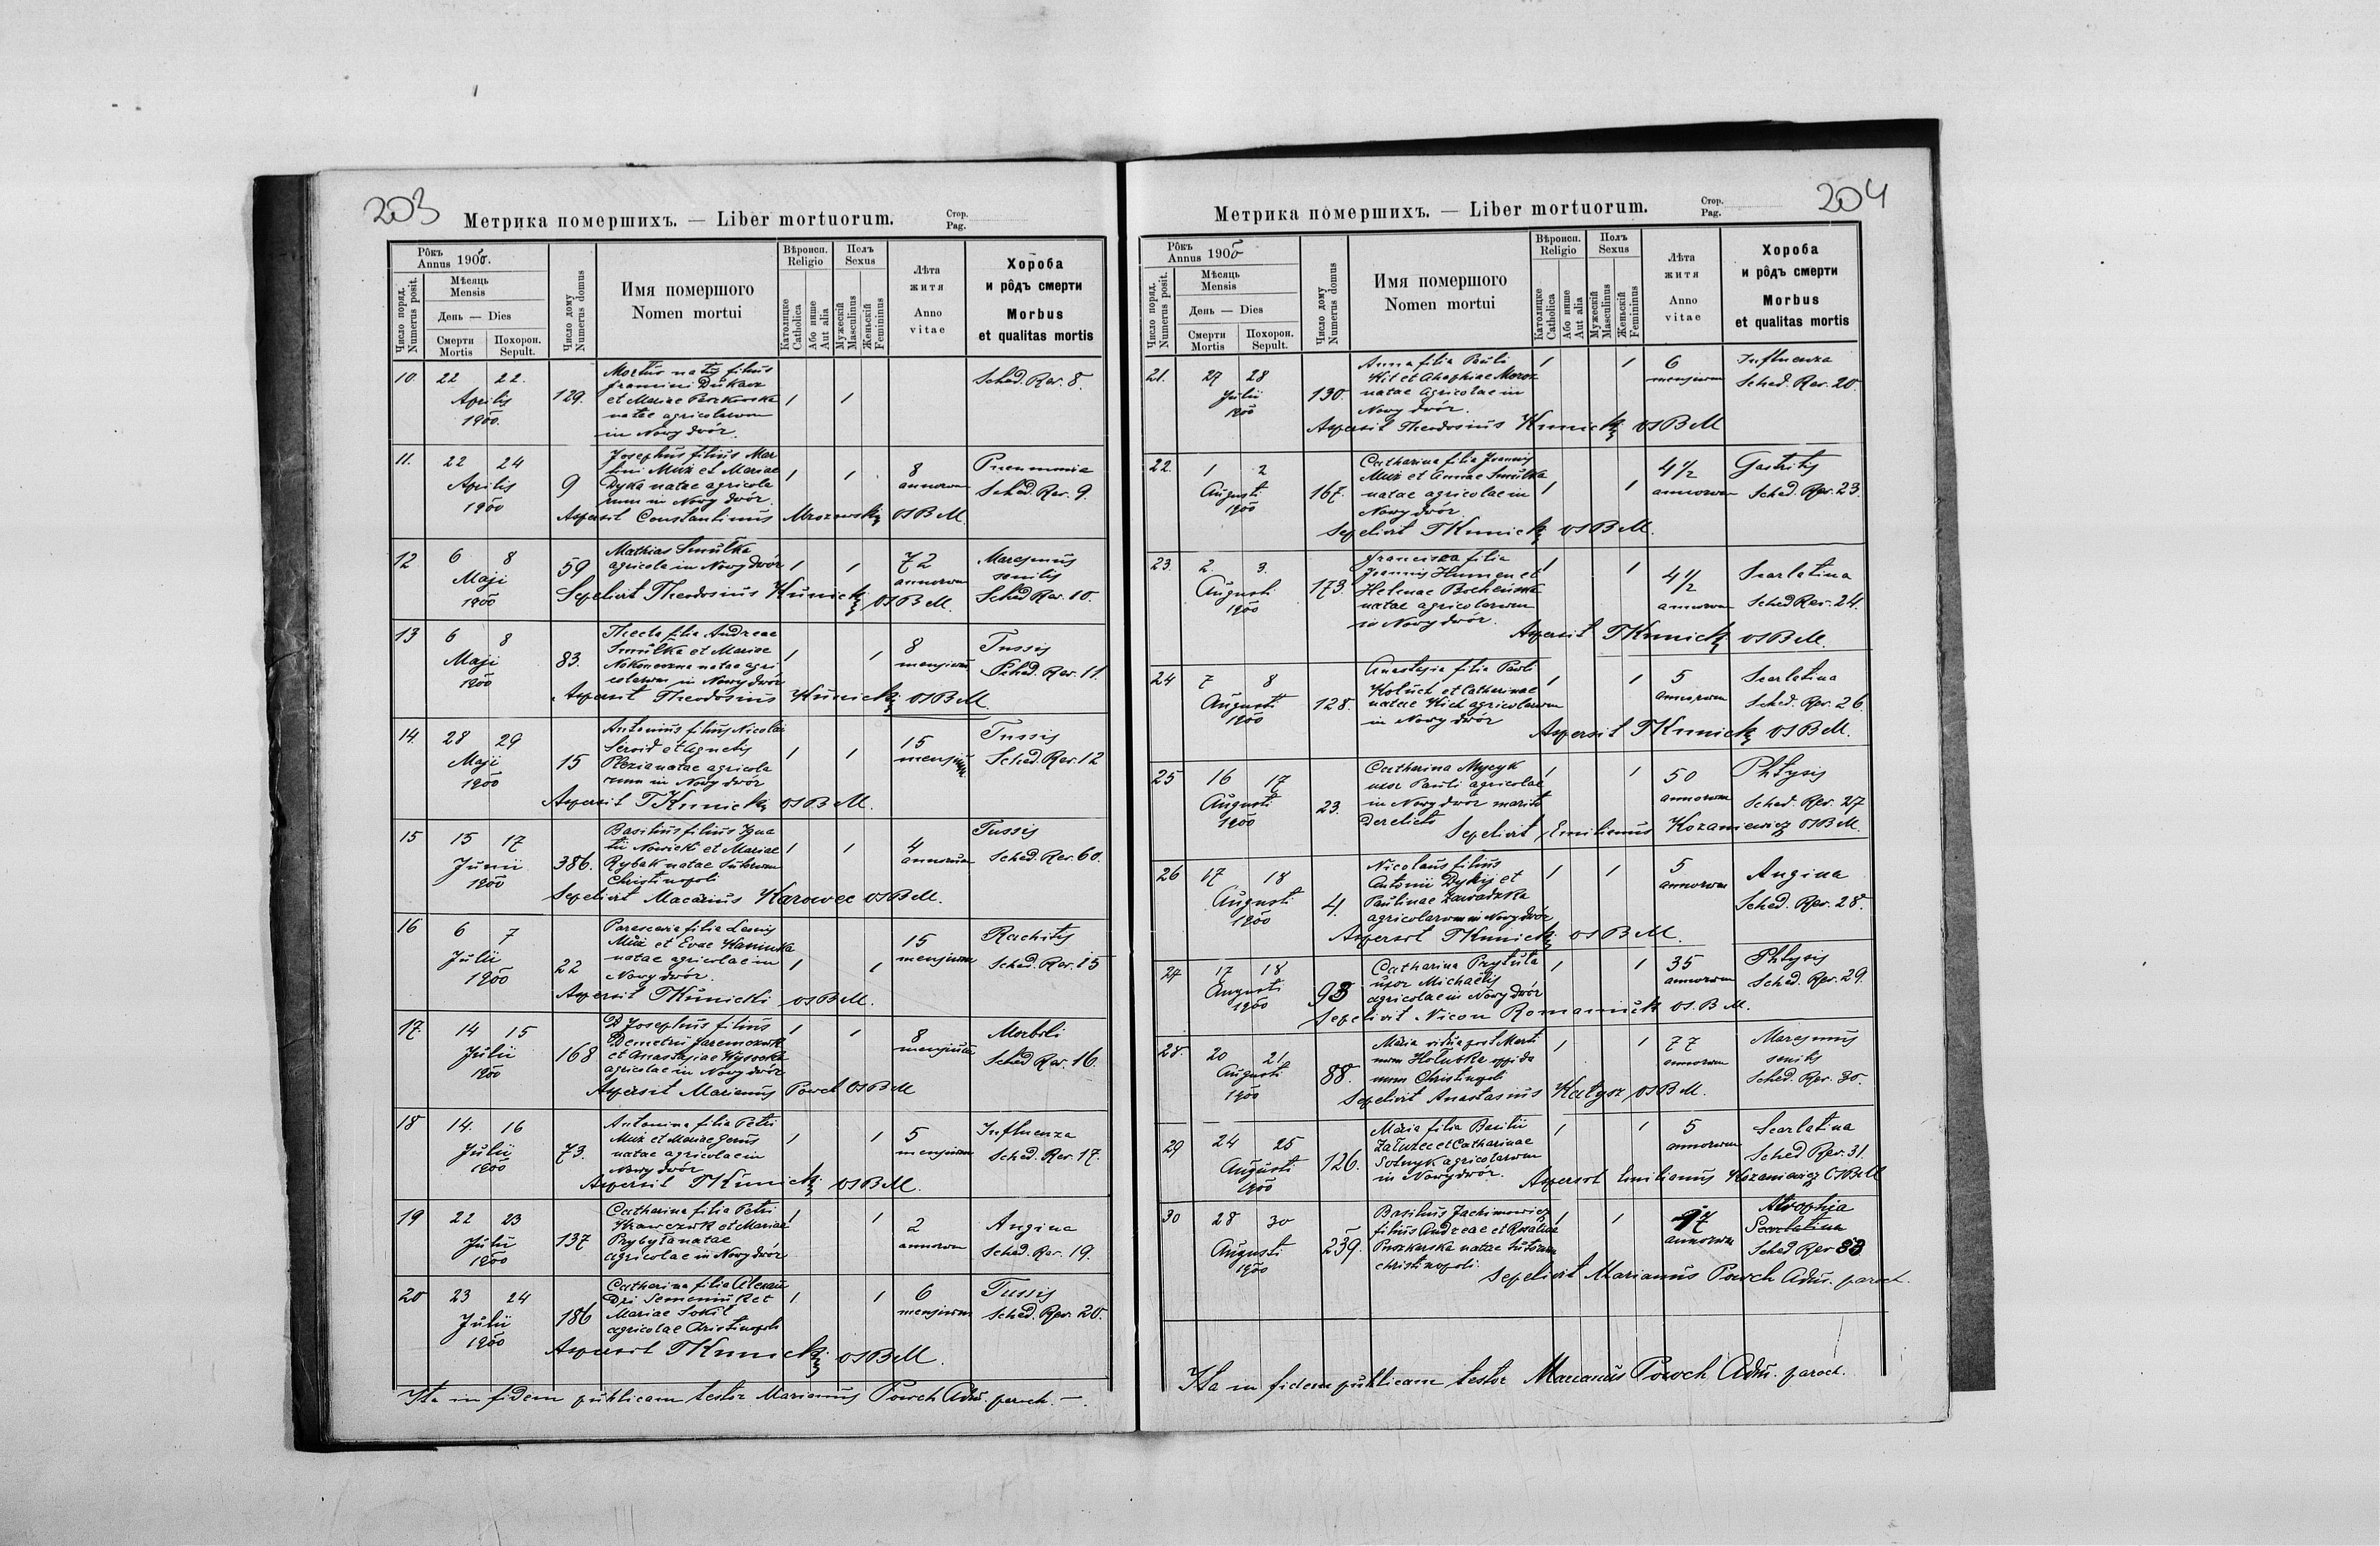 203
Метрика помершихъ. — Liber mortuorum.
Стор.
Pag.
Рôкъ
Annus 1900.
Число поряд.
Numerus posit.
Мѣсяць
Mensis
День — Dies
Смерти
Mortis
Похорон.
Sepult.
Число дому
Numerus domus
Имя помершого
Nomen mortui
Вѣроисп.
Religio
Католицке
Catholica
Або инше
Aut alia
Полъ
Sexus
Мужескій
Masculinus
Женьскій
Femininus
Лѣта
житя
Anno
vitae
Хороба
и рôдъ смерти
Morbus
et qualitas mortis
10. 22 22.
Aprilis
1900.
129.
Mortus natus filius
Francisci Dukacz
et Mariae
natae agricolarum
in Nowy dwór.
1 1
Sched. Rev. 8.
11. 22 24
Aprilis
1900
9
Josephus filius Mar
tini Muż et Mariae
Dyka natae agricola
rum in Nowy dwór.
1 1
8
annorum
Pneumonia
Sched. Rev. 9.
Aspersit Constantinus Mrozowskij OSBM.
12 6 8
Maji
1900
59
Mathias Smulka
agricola in Nowy dwór
1 1
72
annorum
Marasmus
senilis
Sched Rev. 10.
Sepelivit Theodosius Kunickij OSBM.
13 6 8
Maji
1900
83.
Thecla filia Andreae
Smulka et Mariae
Nakoneczna natae agri
colarum in Nowy dwór
1 1
8
mensium
Tussis
Sched. Rev. 11.
Aspersit Theodosius Kunickij OSBM.
14. 28 29
Maji
1900
15
Antonius filius Nicolai
Seroid et Agnetis
natae agricola
rum in Nowy dwór
1 1
15
mensium
Tussis
Sched. Rev. 12
Aspersit TKunickij OSBM.
15 15 17
Junii
1900
386.
Basilius filius Igna
tii Nowicki et Mariae
Rybak natae Sutorum
Christinopoli
1 1
4
annorum
Tussis
Sched. Rev. 60.
Sepelivit Macarius Karowec OSBM.
16 6 7
Julii
1900
22
Parascevia filia Leonis
Muż et Evae Kaminska
natae agricolae in
Nowy dwór.
1 1
15
mensium
Rachitis
Sched. Rev. 15
Aspersit TKunicki OSBM.
17. 14 15
Julii
1900
168
Josephus filius
Demetrii Jaremczuk
et Anastasiae Wysocka
agricolae in Nowy dwór
1 1
8
mensium
Morbili
Sched Rev. 16.
Aspersit Marianus Powch OSBM
18 14. 16
Julii
1900
73.
Antonina filia Petri
Muż et Mariae Jerus
natae agricolae in
Nowy dwór
1 1
5
mensium
Influenza
Sched. Rev. 17.
Aspersit TKunickij OSBM.
19 22 23
Julii
1900
137
Catharina filia Petri
Krawczuk et Mariae
Przybyła natae
agricolae in Nowy dwór
1 1
2
annorum
Angina
Sched. Rev. 19.
20 23 24
Julii
1900
186
Catharina filia Alexan
dri Semeniuk et
Mariae Sokil
agricolae Christinopoli
1 1
6
mensium
Tussis
Sched. Rev. 20.
Aspersit TKunickij OSBM.
Ita in fidem publicam testor Marianus Powch Adm. paroch. —.
204
Метрика помершихъ. — Liber mortuorum.
Стор.
Pag.
Рôкъ
Annus 1900
Число поряд.
Numerus posit.
Мѣсяць
Mensis
День — Dies
Смерти
Mortis
Похорон.
Sepult.
Число дому
Numerus domus
Имя помершого
Nomen mortui
Вѣроисп.
Religio
Католицке
Catholica
Або инше
Aut alia
Полъ
Sexus
Мужескій
Masculinus
Женьскій
Femininus
Лѣта
житя
Anno
vitae
Хороба
и рôдъ смерти
Morbus
et qualitas mortis
21. 27 28
Julii
1900
130.
Anna filia Pauli
Kit et Ahaphiae Moroz
natae agricolae in
Nowy dwór.
1 1
6
mensium
Influenza
Sched. Rev. 20.
Aspersit Theodosius Kunickij OSBM
22. 1 2
Augusti
1900
167.
Catharina filia Joannis
Muż et Annae Smulka
natae agricolae in
Nowy dwór
1 1
4½
annorum
Gastritis
Sched. Rev. 23.
Sepelivit TKunickij OSBM.
23. 2. 3.
Augusti
1900
173.
Francisca filia
Joannis Humen et
Helenae Bocheńska
natae agricolarum
in Nowy dwór.
1 1
4½
annorum
Scarlatina
Sched Rev. 24.
Aspersit TKunickij OSBM.
24 7 8
Augusti
1900
128.
Anastasia filia Pauli
Koluch et Catharinae
natae Kich agricolarum
in Nowy dwór
1 1
5
annorum
Scarlatina
Sched. Rev. 26.
Aspersit TKunickij OSBM.
25 16 17
Augusti
1900
23.
Catharina Mycyk
uxor Pauli agricolae
in Nowy dwór marito
derelicto
1 1
50
annorum
Phtysis
Sched. Rev. 27
Sepelivit Emilianus Kozaniewicz OSBM.
26 17 18
Augusti
1900
4.
Nicolaus filius
Antonii Dykij et
Paulinae Zawadzka
agricolarum in Nowy dwór
1 1
5
annorum
Angina
Sched. Rev. 28.
Aspersit TKunickij OSBM.
27 17 18
Augusti
1900
93
Catharina Prytuła
uxor Michaelis
agricolae in Nowy dwór
1 1
35
annorum
Phtysis
Sched. Rev. 29.
Sepelivit Nicon Romaniuk OS.B.M.
28. 20 21
Augusti
1900
88.
Maria vidua post Marti
num Hołubka oppida
num Christinopoli
1 1
77
annorum
Marasmus
senilis
Sched. Rev. 30.
Sepelivit Anastasius Kałysz OSBM.
29 24 25
Augusti
1900
126.
Maria filia Basilii
Załuzec et Catharinae
Sotnyk agricolarum
in Nowy dwór.
1 1
5
annorum
Scarlatina
Sched Rev. 31.
Aspersit Emilianus Kozaniewicz OSBM
30 28 30
Augusti
1900
239.
Basilius Jachimowicz
filius Andreae et Rosaliae
Puszkarska natae Sutorum
Christinopoli.
1 1
17
annorum
Atrophia
Scarlatina
Sched Rev 33
Sepelivit Marianus Powch Adm. paroch.
Ita in fidem publicam testor Marianus Powch Adm. paroch.